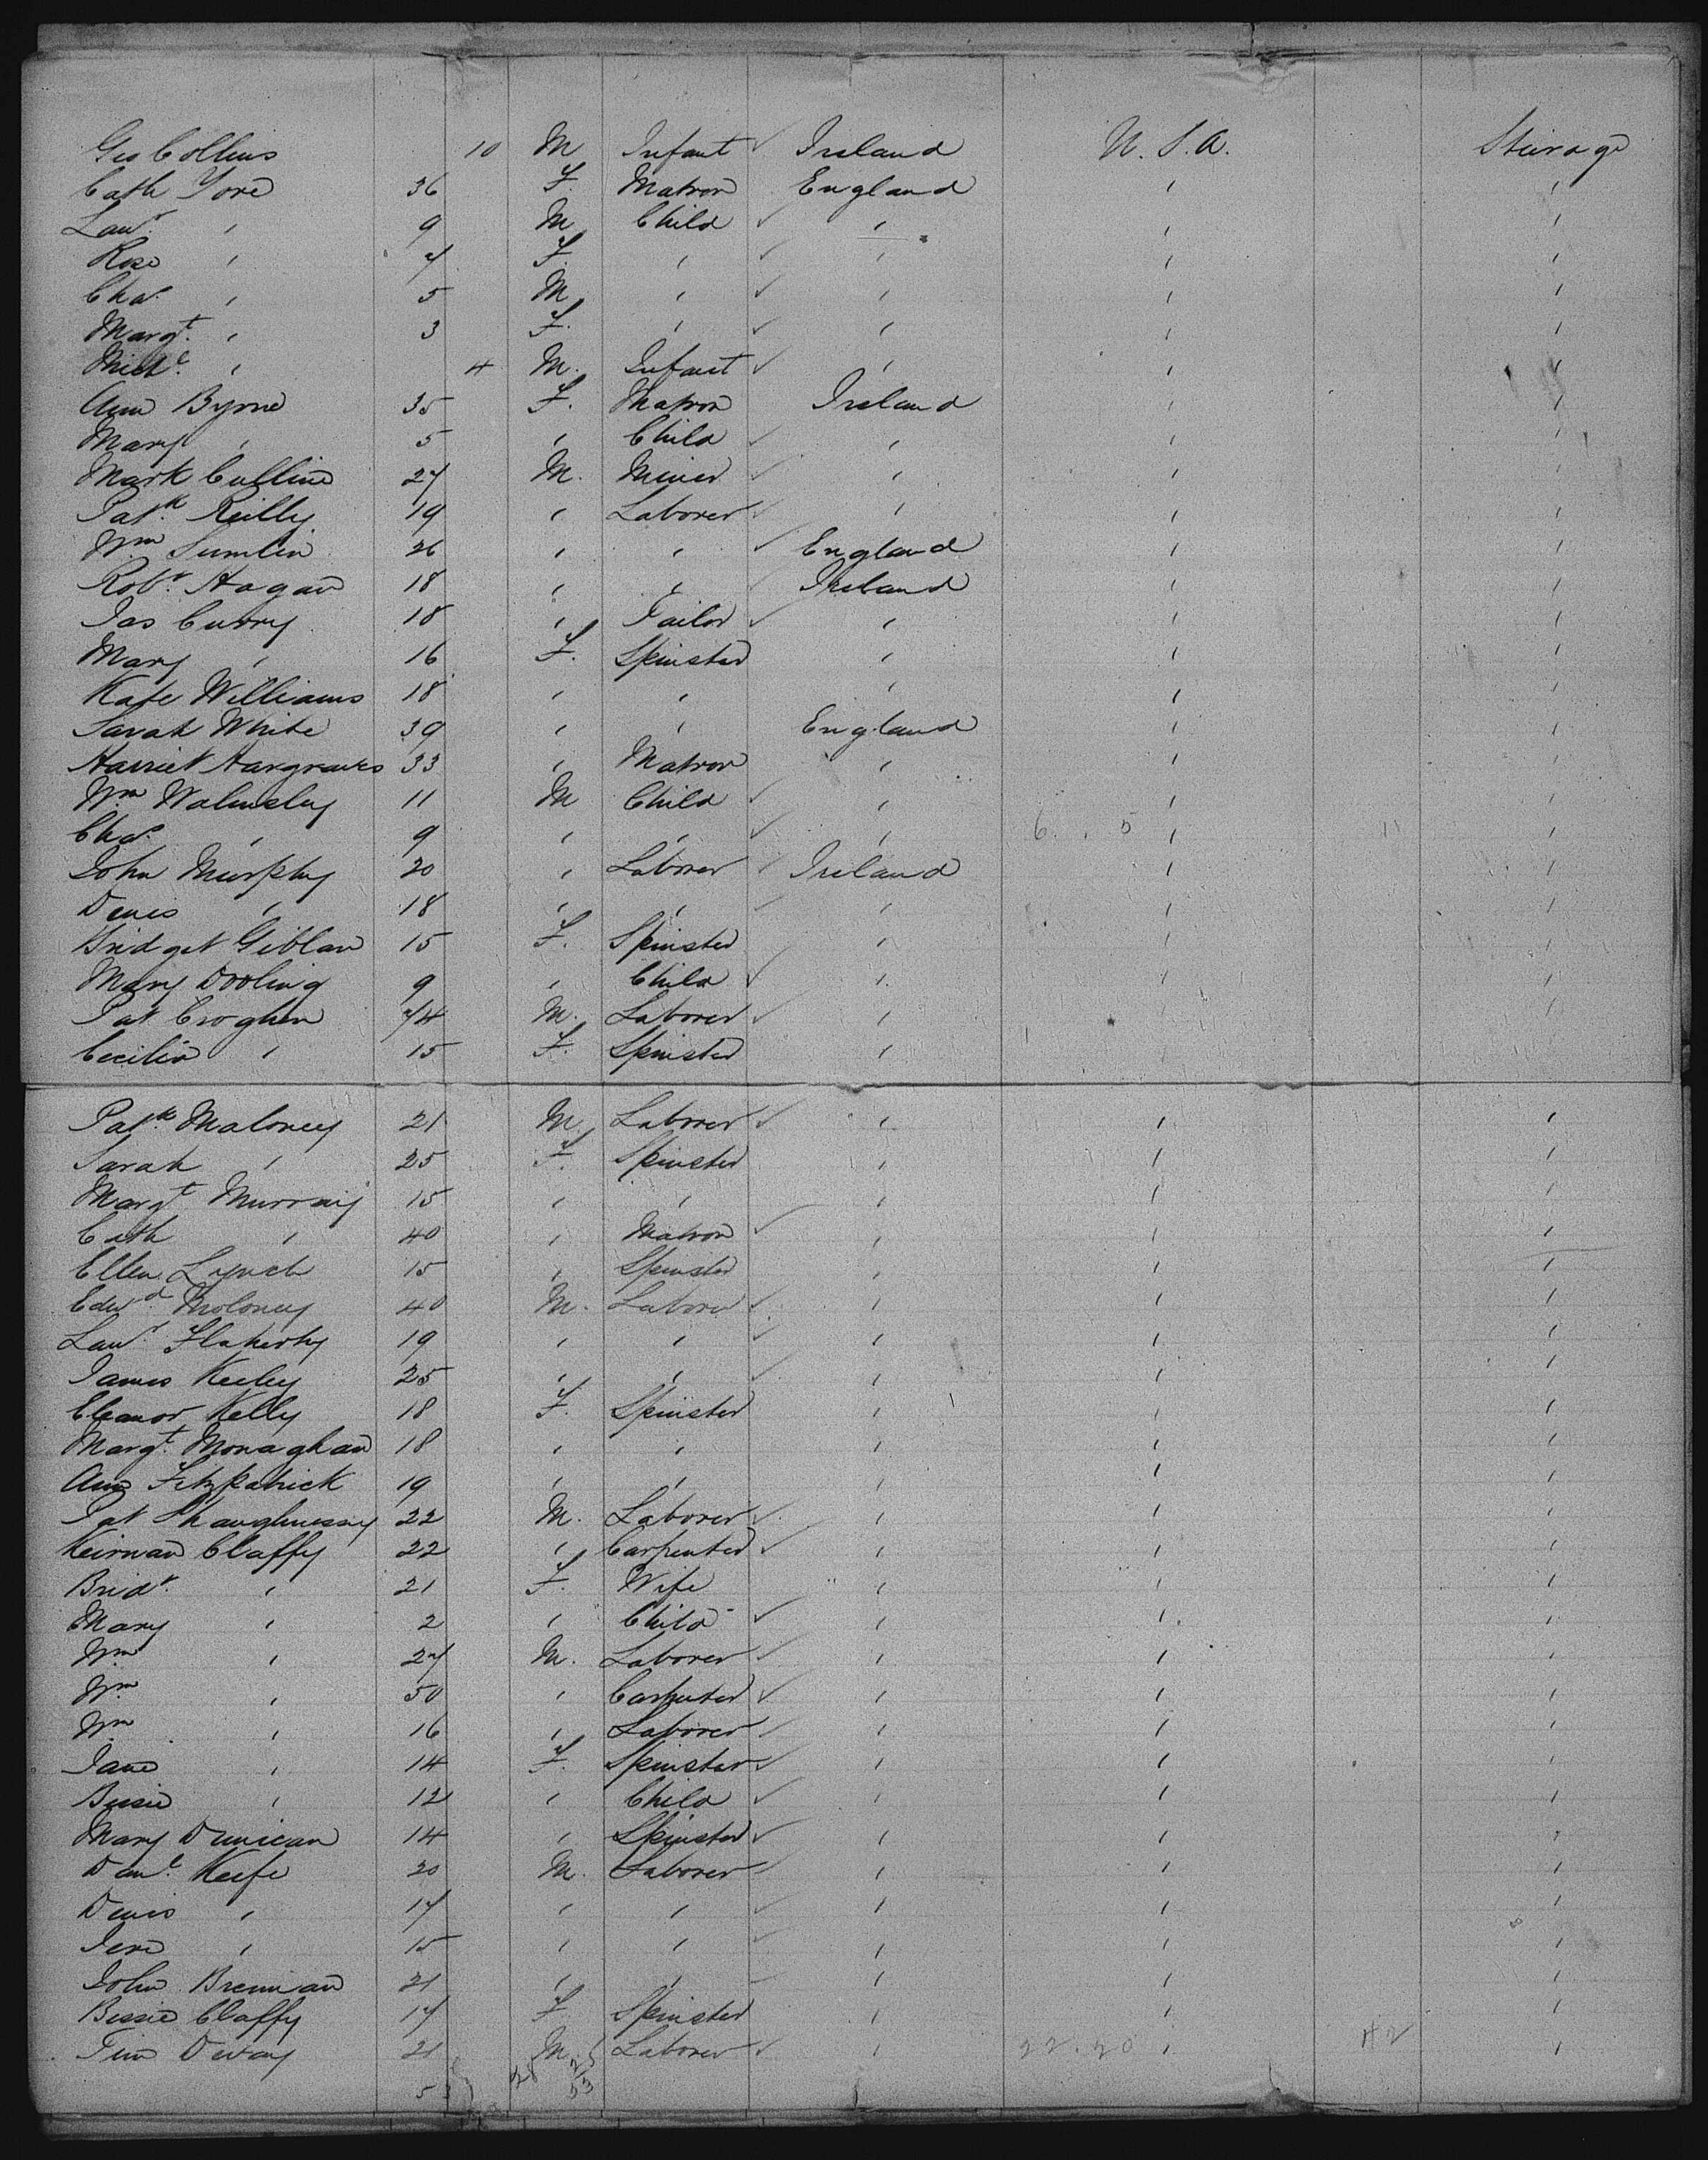 Geo Collins 10 M Infant ✓ Ireland U.S.A. Steerage
Cath Yore 36 F. Matron England " "
Lawr. " 9 M Child ✓ " " "
Rose " 7 F. " ✓ " " "
Chas. " 5 M " ✓ " " "
Margt. " 3 F. " ✓ " " "
Michl. " 4 M. Infant ✓ " " "
Ann Byrne 35 F. Matron Ireland " "
Mary " 5 " Child ✓ " " "
Mark Cullino 27 M. Miner ✓ " " "
Patk. Reilly 19 " Laborer ✓ " " "
Wm Sumlin 26 " " ✓ England " "
Robt. Hagan 18 " " ✓ Ireland " "
Jas Curry 18 " Tailor ✓ " " "
Mary " 16 F. Spinster " " "
Kate Williams 18 " " " " "
Sarah White 39 " " England " "
Harriet Hargraves 33 " Matron " " "
Wm Walmsley 11 M Child ✓ " " "
Chas. " 9 " " ✓ " 6 . 5 " 11 "
John Murphy 20 " Laborer ✓ Ireland " "
Denis " 18 " " ✓ " " "
Bridget Giblan 15 F. Spinster " " "
Mary Dooling 9 " Child ✓ " " "
Pat Croghen 74 M. Laborer ✓ " " "
Cecilia " 15 F. Spinster " " "
Patk. Maloney 21 M. Laborer ✓ " " "
Sarah " 25 F. Spinster " " "
Margt Murray 15 " " " " "
Cath " 40 " Matron ✓ " " "
Ellen Lynch 15 " Spinster " " "
Edwd. Moloney 40 M. Laborer ✓ " " "
Lawr. Flaherty 19 " " ✓ " " "
James Keeley 25 " " ✓ " " "
Eleanor Kelly 18 F. Spinster " " "
Margt. Monaghan 18 " " " " "
Ann Fitzpatrick 19 " " " " "
Pat Shaughnessy 22 M. Laborer ✓ " " "
Keirnan Claffy 22 " Carpenter ✓ " " "
Bridt. " 21 F. Wife " " "
Mary " 2 " Child ✓ " " "
Wm " 27 M. Laborer ✓ " " "
Wm " 50 " Carpenter ✓ " " "
Wm " 16 " Laborer ✓ " " "
Jane " 14 F. Spinster ✓ " " "
Bessie " 12 " Child ✓ " " "
Mary Dunican 14 " Spinster ✓ " " "
Danl. Keefe 20 M. Laborer ✓ " " "
Denis " 17 " " ✓ " " "
Jere " 15 " " ✓ " " "
John Brennan 21 " " ✓ " " "
Bessie Claffy 17 F. Spinster " " "
Tim Devany 21 M. Laborer ✓ " 22 . 20 " 42 "
28 25
53